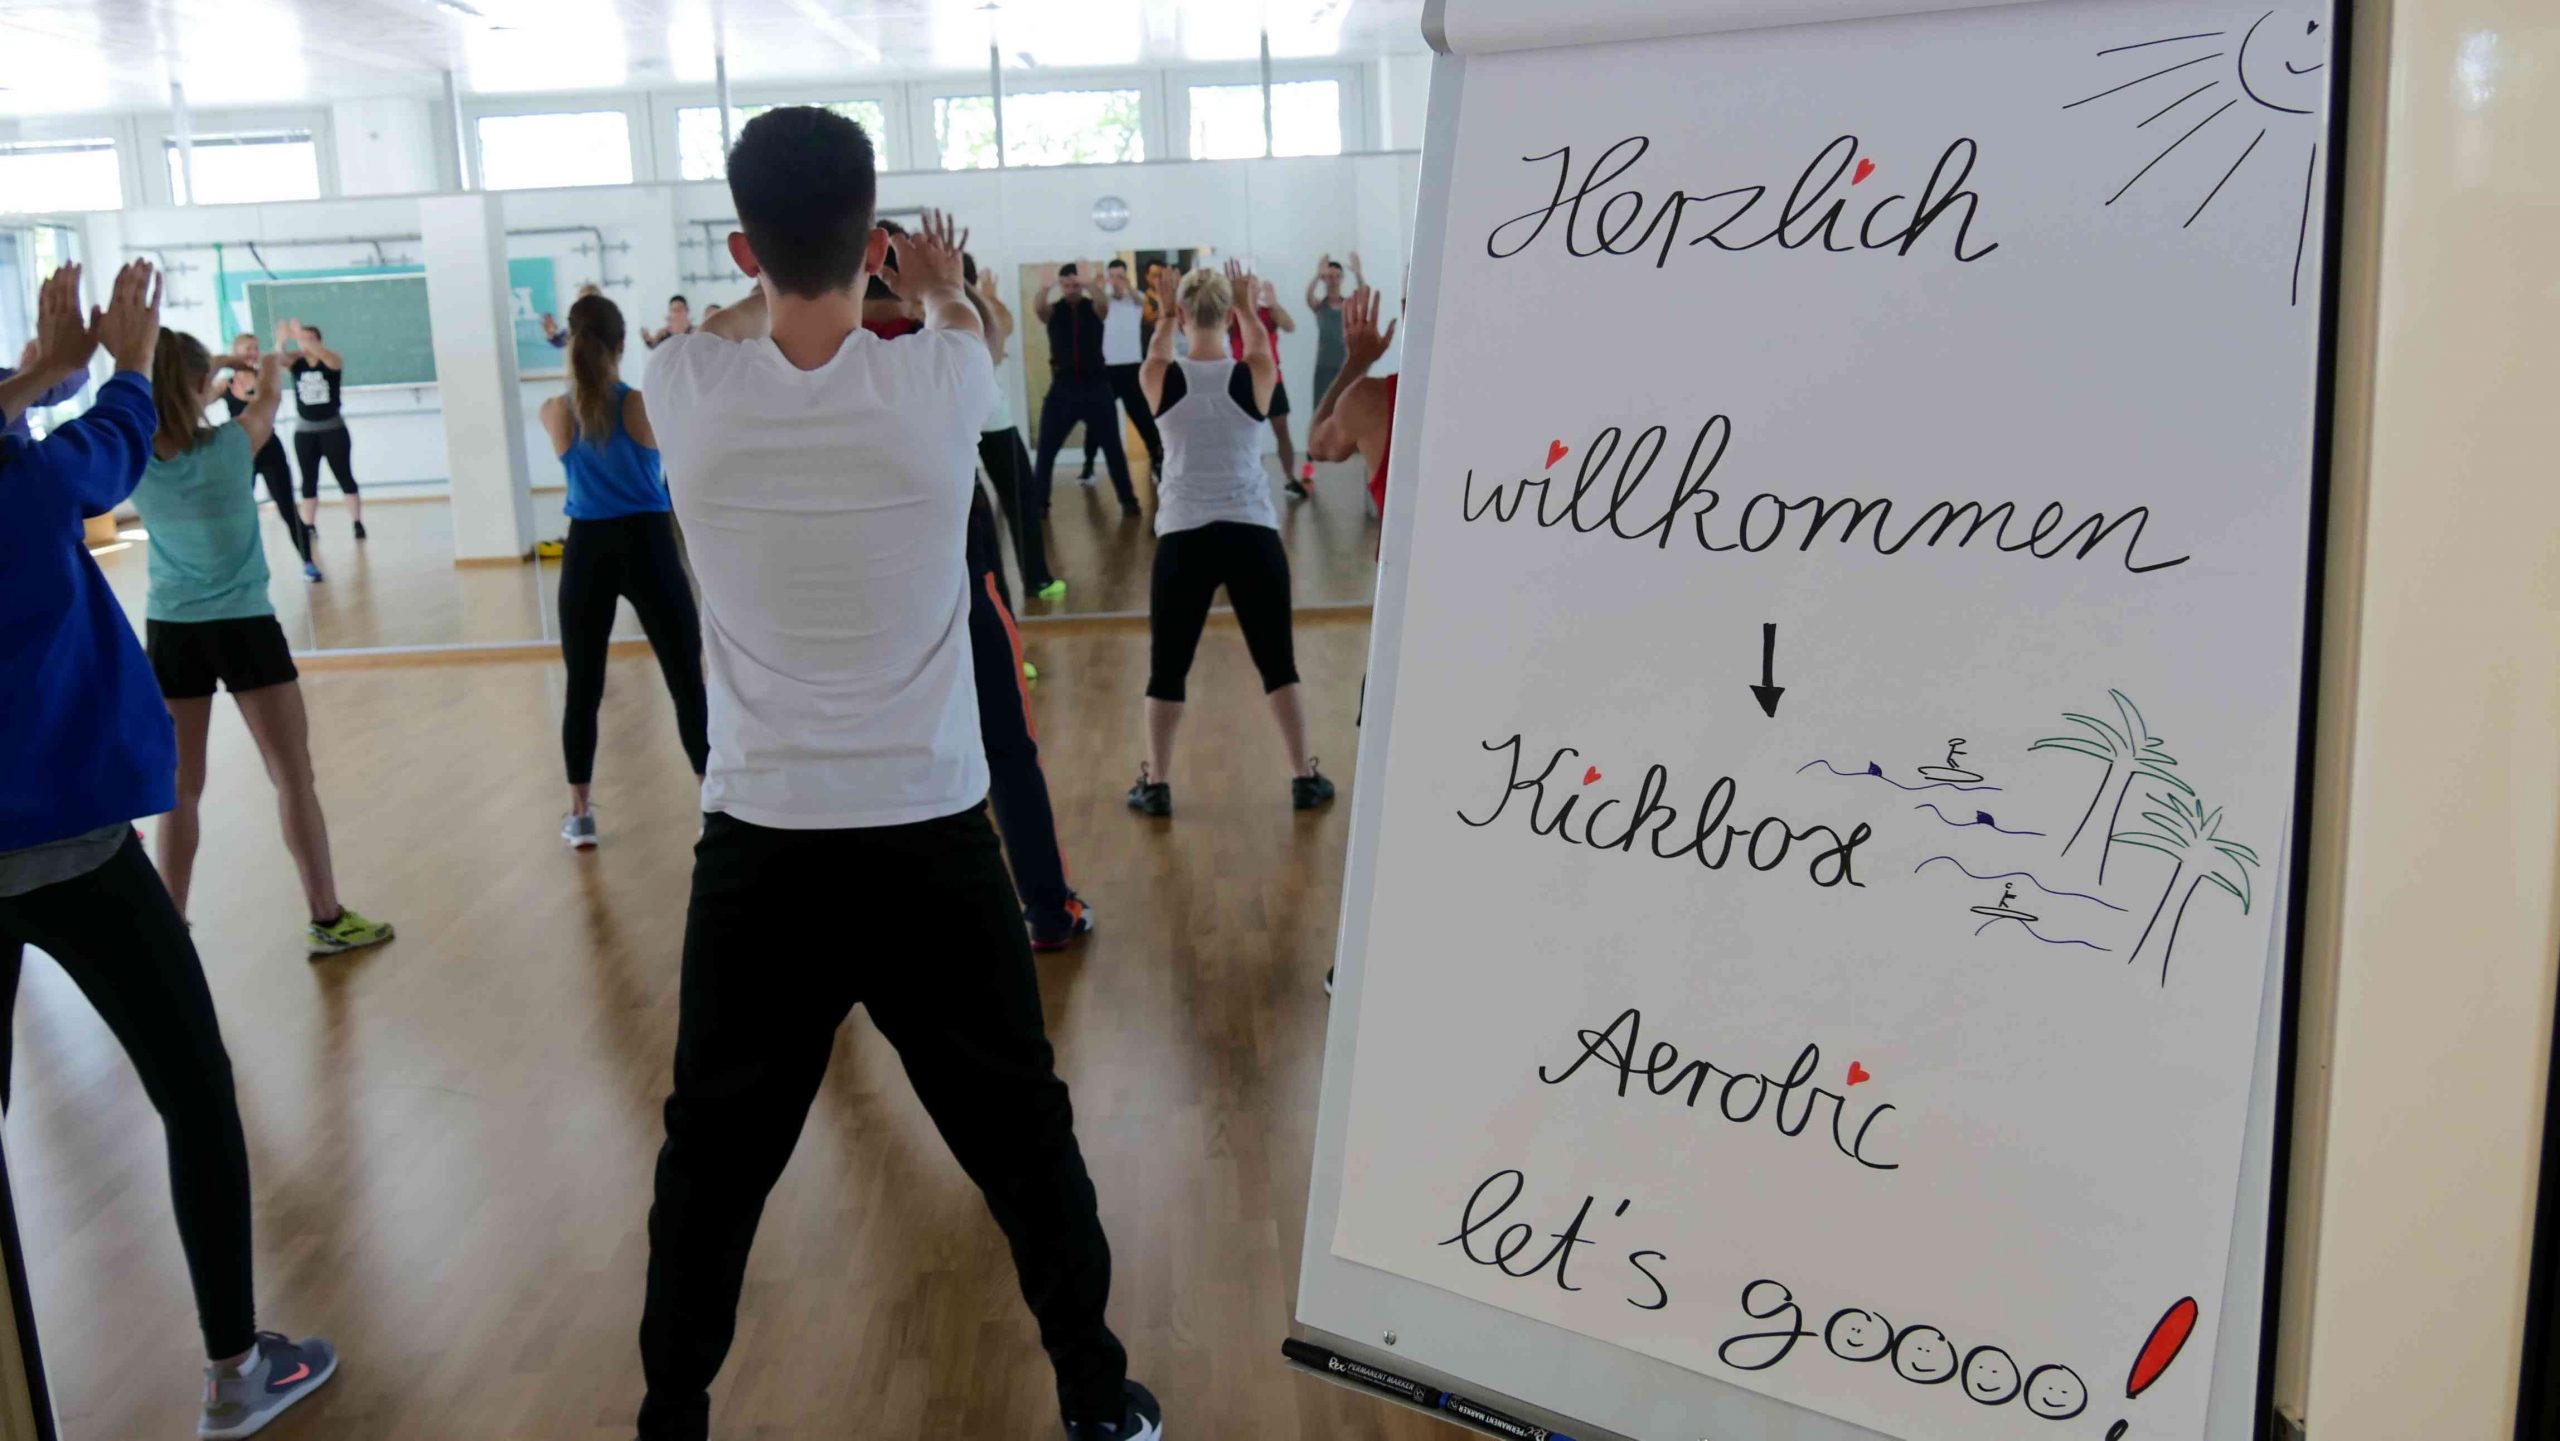 Herzlich
willkommen
Kickbox
Aerobic
let's goooo!
Rex PERMANENT MARKER
PERMANENT MARKER